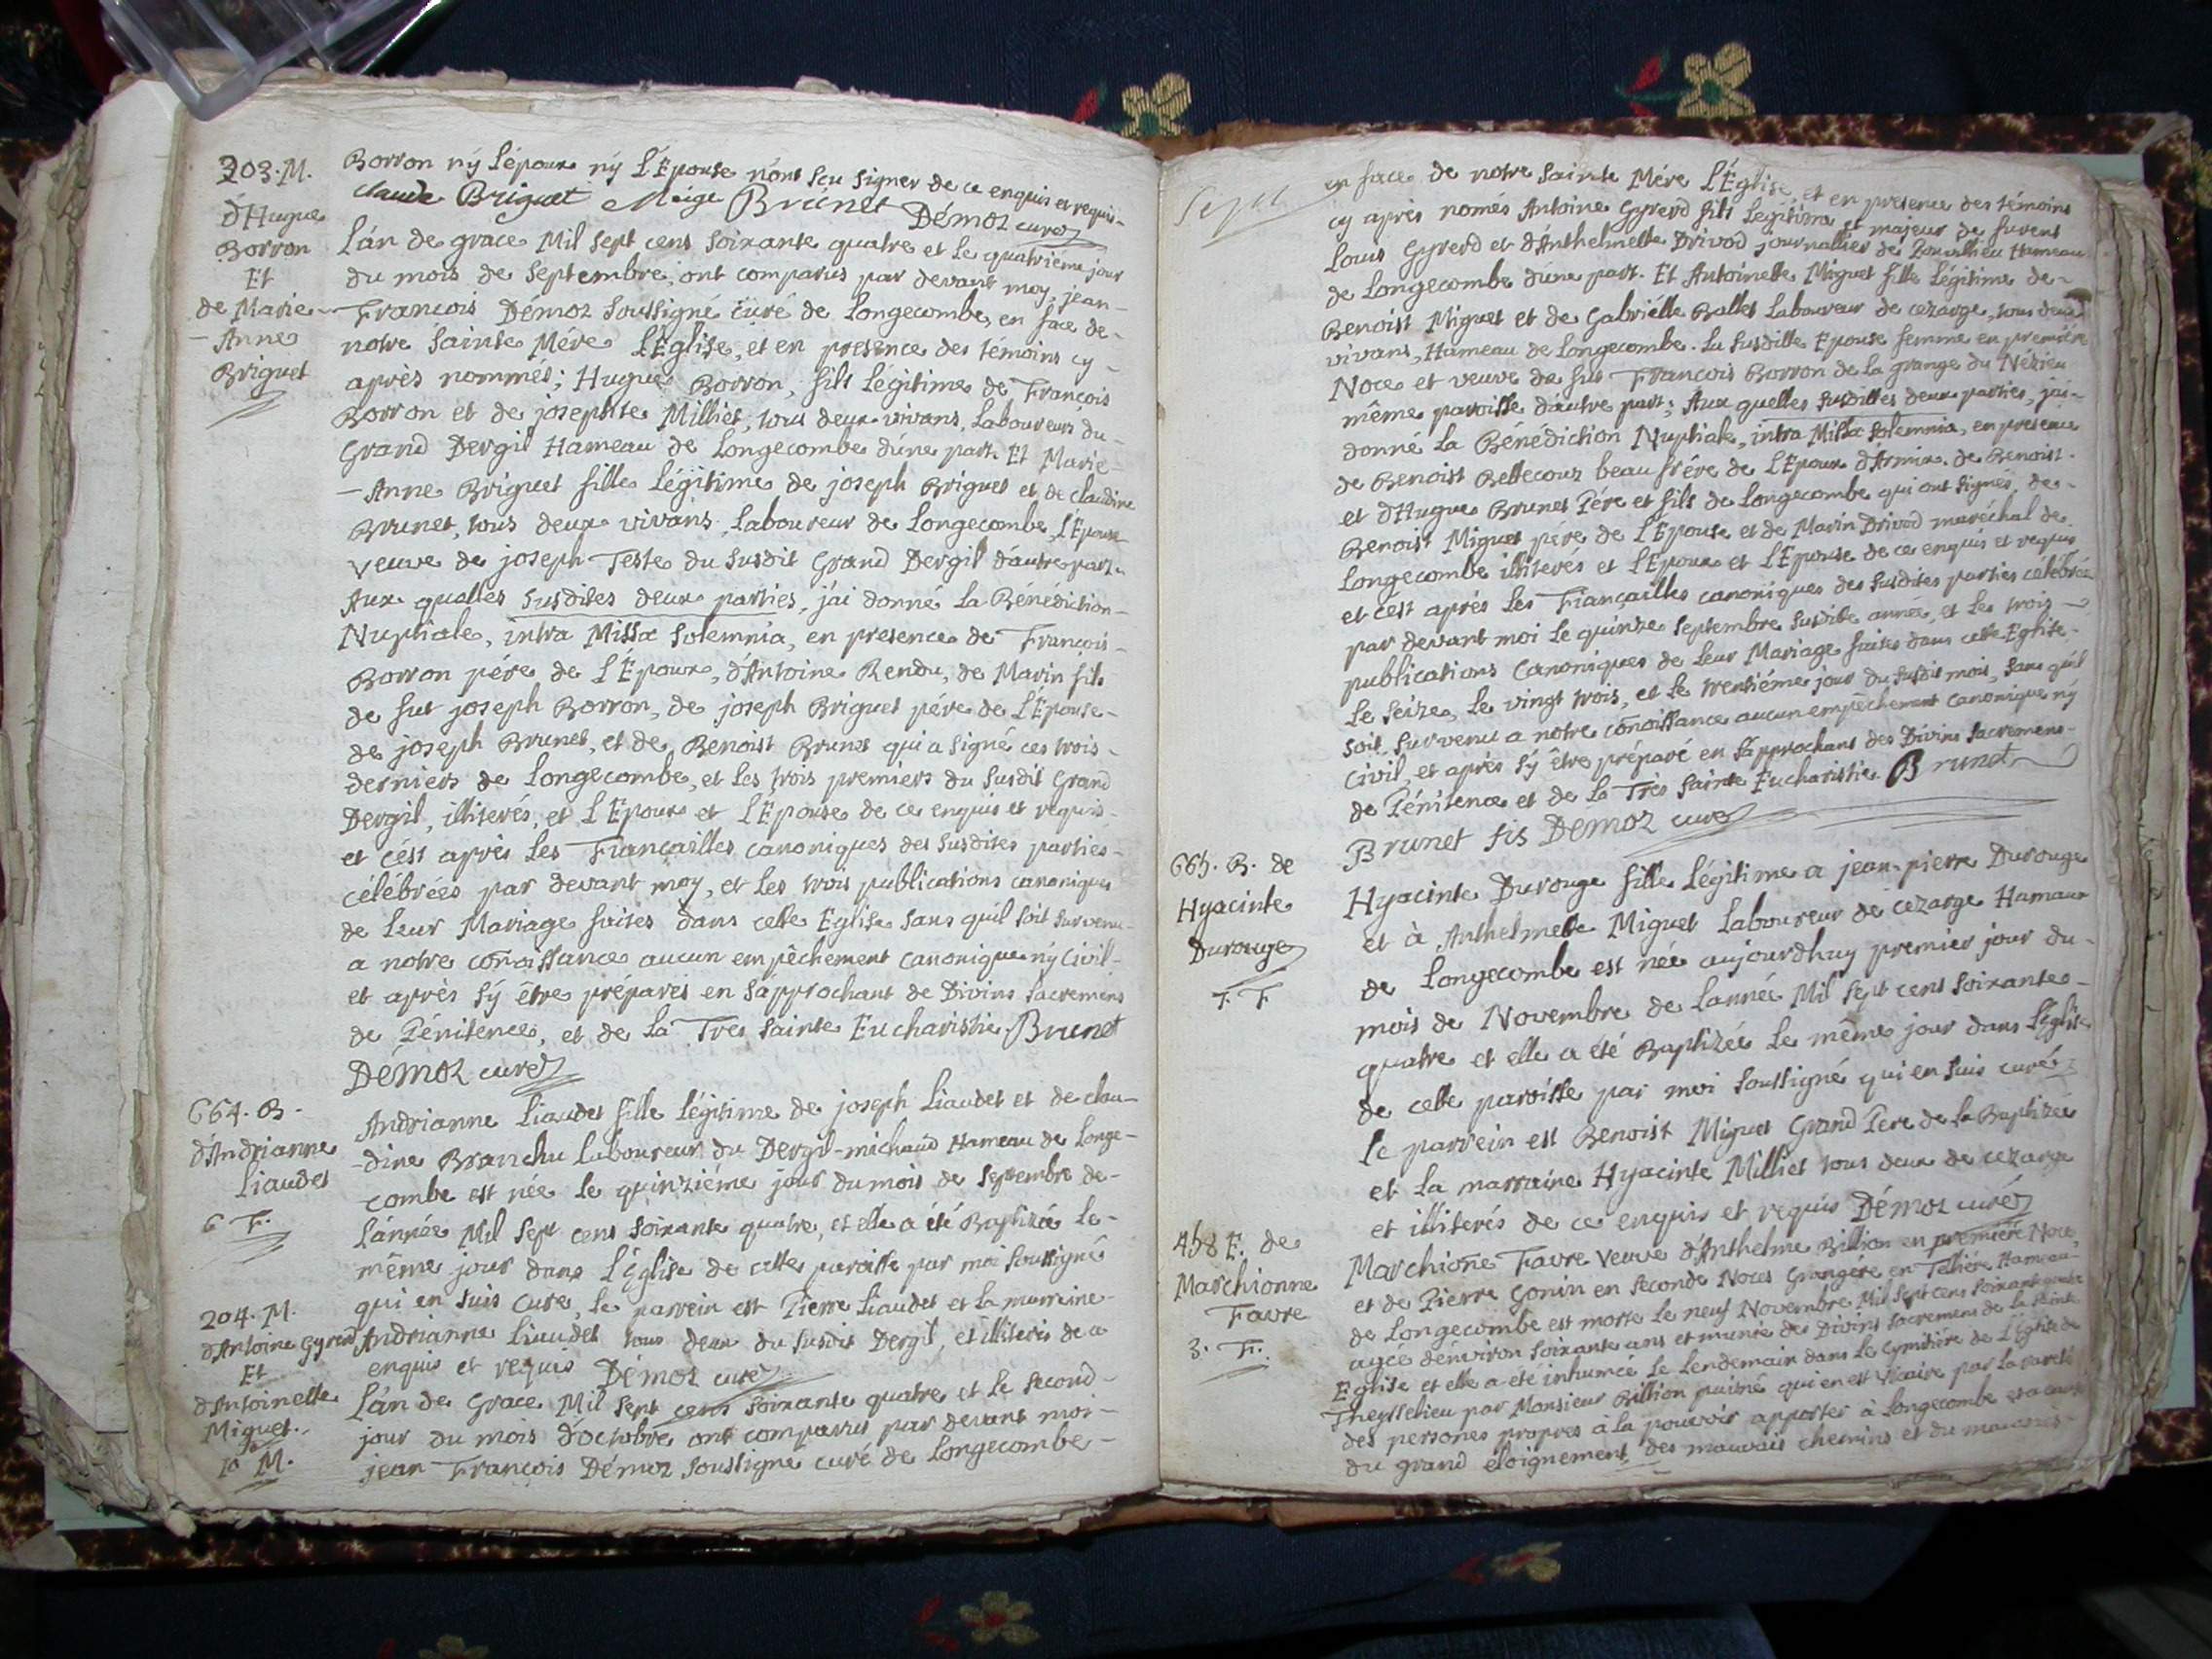 203. M.
d'Hugue
Borron
Et
de Marie
Anne
Briguet
Borron ny l'époux ny l'Epouse n'ont sçu signer de ce enquis et requis
Claude Briguet Meige Brunet Démoz curé
L'an de grace Mil sept cens soixante quatre et le quatrieme jour
du mois de septembre, ont comparus par devant moy, jean-
François Démoz soussigné curé de Longecombe, en face de-
notre sainte Mére L'Église, et en presence des témoins cy-
après nommés; Hugue Borron, fils légitime de François
Borron et de josephte Milliet, tous deux vivans, Laboureurs du-
Grand Dergil Hameau de Longecombe d'une part. Et Marie-
-Anne Briguet fille Légitime de joseph Briguet et de claudine
Brunet, tous deux vivans, laboureur de Longecombe, L'Epouse
veuve de joseph Teste du susdit Grand Dergil d'autre part.
Aux quelles susdites deux parties, j'ai donné La Bénédiction-
Nuptiale, intra Missæ solemnia, en presence de François-
Borron pére de L'Époux, d'Antoine Rendu, de Marin fils
de fut joseph Borron, de joseph Briguet pére de L'Épouse-
de joseph Brunet, et de Benoist Brunet qui a signé ces trois-
derniers de Longecombe, et les trois premiers du susdit Grand
Dergil, illiterés, et L'Epoux et L'Epouse de ce enquis et requis-
et c'ést après Les Fiancailles canoniques des susdites parties-
célébrées par devant moy, et les trois publications canoniques
de leur Mariage faites dans cette Eglise sans qu'il soit survenu-
a notre conoissance aucun empêchement canonique ny Civil-
et après s'ÿ être préparés en s'approchant de Divins sacremens
de Pénitence, et de la Tres sainte Eucharistie Brunet
Démoz curé
664. B.
d'Andrianne
Liaudet
6 F.
Andrianne Liaudet fille légitime de joseph Liaudet et de clau-
-dine Branchu laboureur du Dergil-michaud Hameau de Longe-
combe est née le quinziéme jour du mois de septembre de-
L'année Mil sept cens soixante quatre, et elle a été Baptizée Le-
même jour dans L'Église de cette paroisse par moi soussigné
qui en suis curé, le parrein est Pierre Liaudet et la marreine-
Andrianne Liaudet tous deux du susdit Dergil, et illiterés de ce
enquis et requis Démoz curé
204. M.
d'Antoine Gyrerd
Et
d'Antoinette
Miguet.
M.
L'an de Grace Mil sept cens soixante quatre et le second-
jour du mois d'octobre ont comparus par devant moi-
jean François Démoz soussigné curé de Longecombe-
Sept
en face de notre sainte Mére L'Église, et en presence des témoins
cy après només Antoine Gyrerd fils Légitime et majeur de furent
Louis Gyrerd et d'Anthelmette Drivod journallier de Hameau
de Longecombe d'une part. Et Antoinette Miguet fille légitime de-
Benoist Miguet et de Gabriélle Ballet Laboureur de cezarge, tous deux
vivans, Hameau de Longecombe. La susditte Epouse femme en première
Noce et veuve de fut François Borron de la grange du Nézieu
même paroisse d'autre part; Aux quelles susdittes deux parties, j'ai-
donné La Bénédiction Nuptiale, intra Missæ solemnia, en presence
de Benoist Bellecour beau frére de L'Epoux d'Armix. de Benoist-
et d'Hugue Brunet Pére et fils de Longecombe qui ont signés, de-
Benoist Miguet pére de l'Epouse et de Marin Drivod maréchal de
Longecombe illiterés et L'Epoux et L'Epouse de ce enquis et requis
et c'est après Les Fiançailles canoniques des susdites parties célébrées
par devant moi le quinze septembre susdite année, et les trois
publications Canoniques de leur Mariage faites dans cette Eglise-
Le seize, le vingt trois, et le trentiéme jour du susdit mois, sans qu'il
soit survenu a notre conoissance aucun empêchement canonique ny
Civil, et après s'y être préparé en s'approchant des Divins sacremens-
de Pénitence et de la Très Sainte Eucharistie Brunet
Brunet fis Démoz curé
665. B. de
Hyacinte
Durouge
F. F
Hyacinte Durouge fille légitime a jean-pierre Durouge
et à Anthelmette Miguet Laboureur de cezarge Hamaux
de Longecombe est née aujourdhuy premier jour du-
mois de Novembre de L'année Mil sept cens soixante-
quatre et elle a été Baptizée Le même jour dans L'Église
de cette paroisse par moi soussigné qui en suis curé
le parrein est Benoist Miguet Grand Pere de la Baptizée
et la marraine Hyacinte Milliet tous deux de cezarge
et illiterés de ce enquis et requis Démoz curé
458 E. de
Marchionne
Favre
3. F.
Marchione Favre veuve d'Anthelme Billion en première Noce,
et de Pierre Gonin en seconde Noces Grangere en Telliére Hameau-
de Longecombe est morte Le neuf Novembre Mil sept cens soixante quatre
agée d'énviron soixante ans et munie des Divins sacremens de la sainte
Eglise et elle a été inhumée Le Lendemain dans Le Cymitiére de L'Eglise de
Theysselieu par Monsieur Billion puisné qui en est vicaire par la rareté
des persones propres à la pouvoir apporter à Longecombe et a cause
du grand éloignement des mauvais chemins et du mauvais-